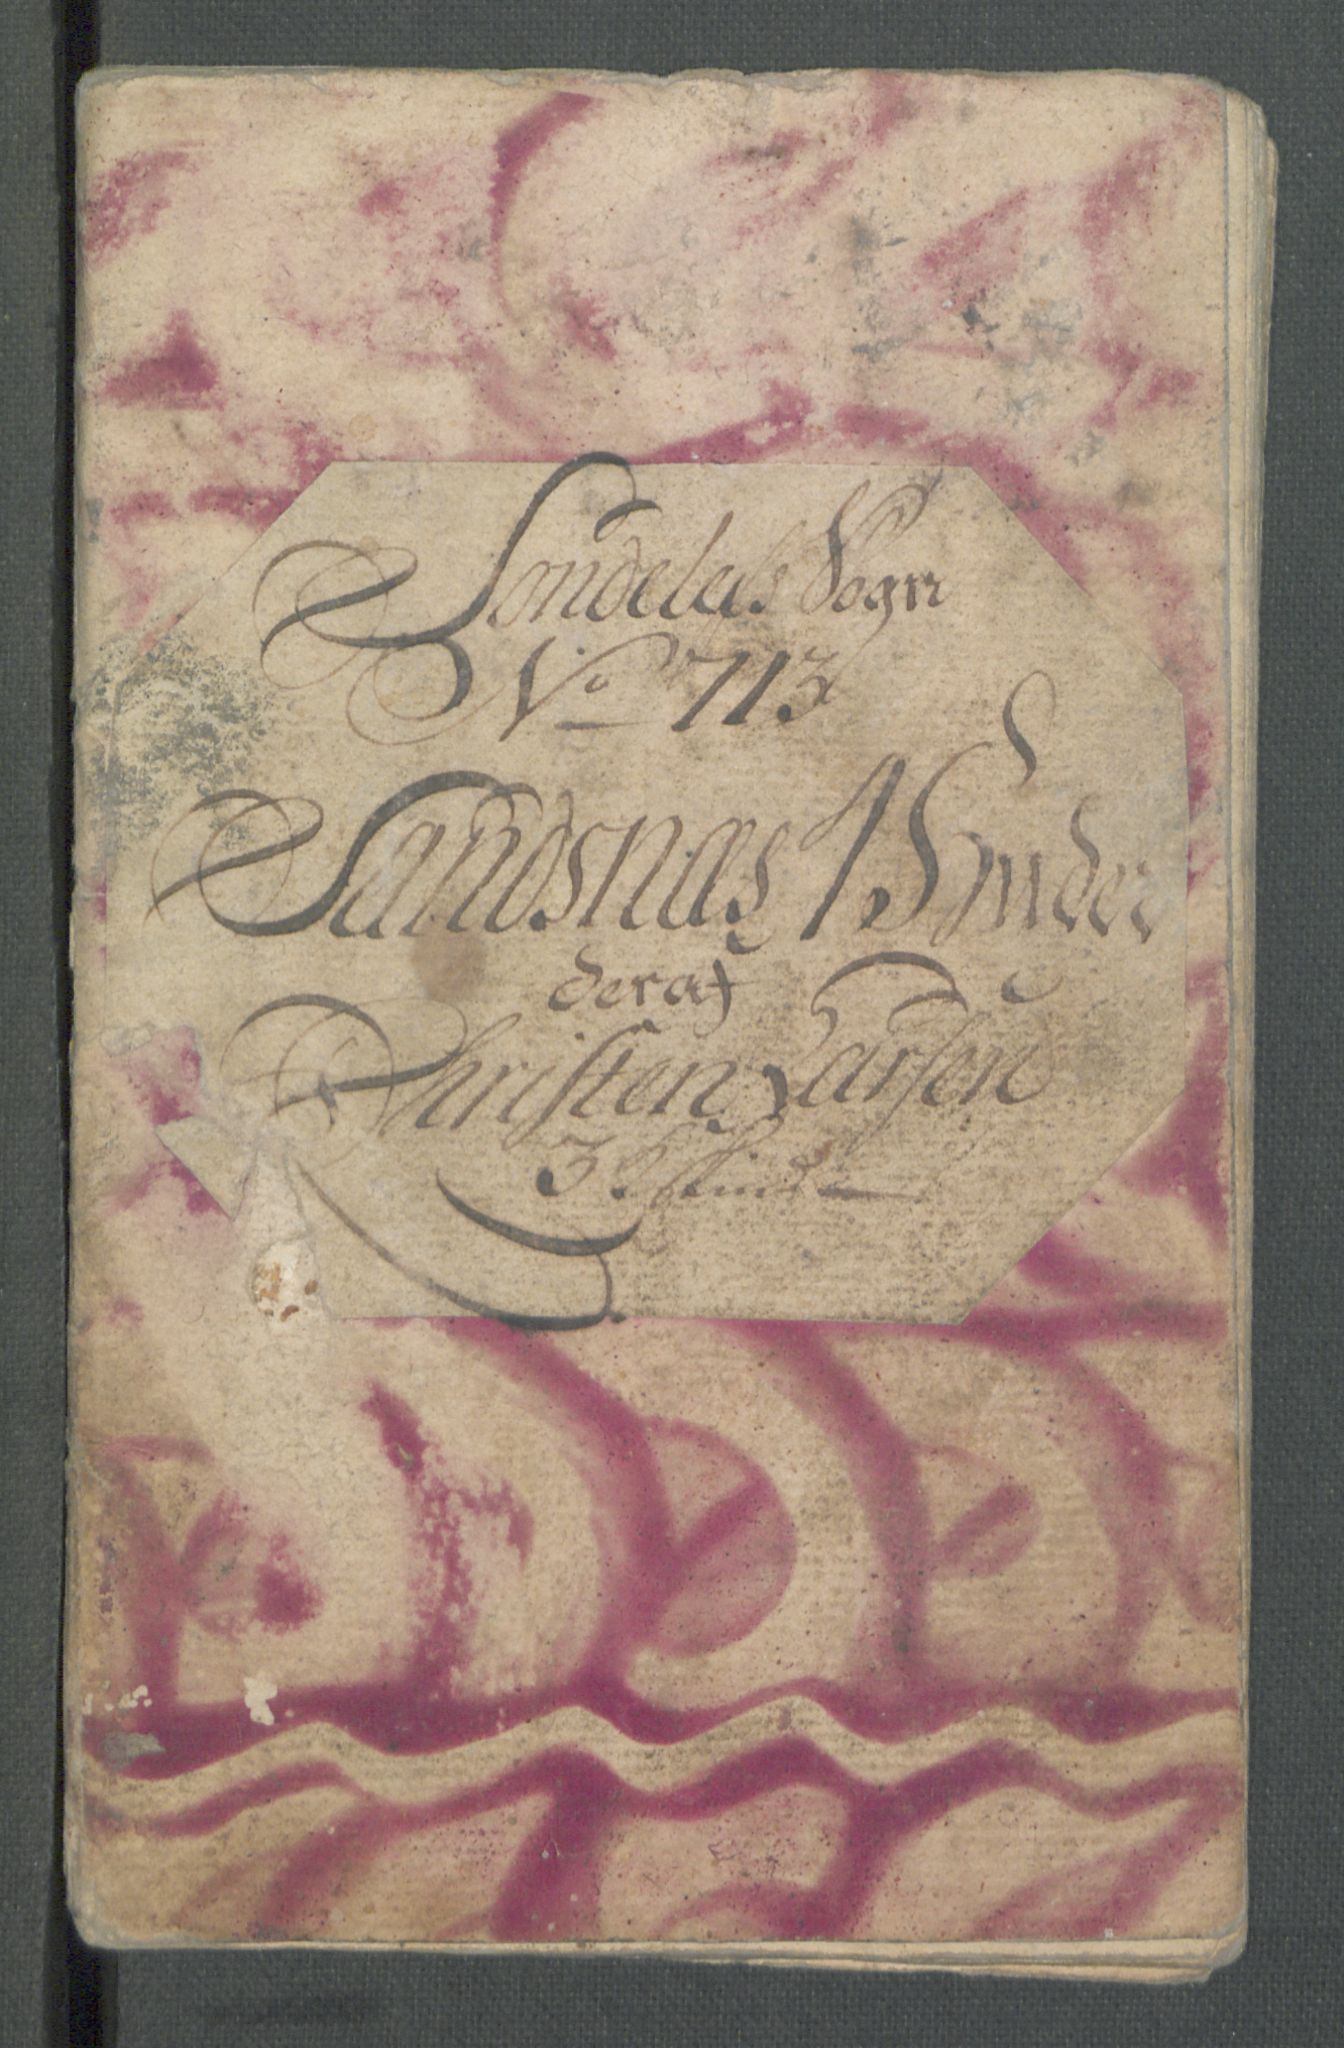 Sondeleds Sogn
No 713
Sandsnæs 1 S ynder
deraf
Christen Larsen
3